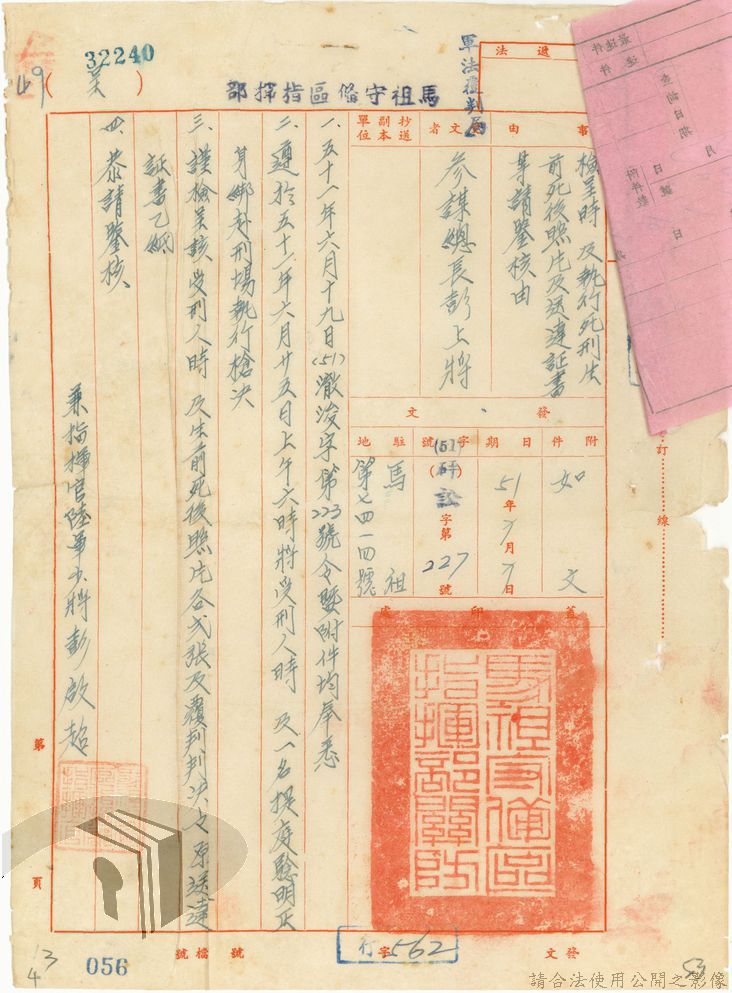 32240
49
(美)
馬祖守備區指揮部
軍法覆判局
法 週
事由
檢呈時 及執行死刑生
前死後照片及送達証書
等請鑒核由
受文者
參謀總長彭上將
抄送副本單位
發文
附件
如文
日期
51年7月7日
字號
(51)
字第227號
駐地
馬祖
第七四一四號
蓋印處
馬祖守備區指揮部關防
一、五十一年六月十九日(51)澈浚字第223號令暨附件均奉悉
二、遵於五十一年六月廿五日上午六時將受刑人時 及一名提庭驗明正
身綁赴刑場執行槍決
三、謹檢呈該受刑人時 及生前死後照片各弍張及覆判判決文原送達
証書乙紙
四、恭請鑒核
兼指揮官陸軍少將彭啟超
訂線
第 頁
056
檔號 號
行字562
發文
53
請合法使用公開之影像